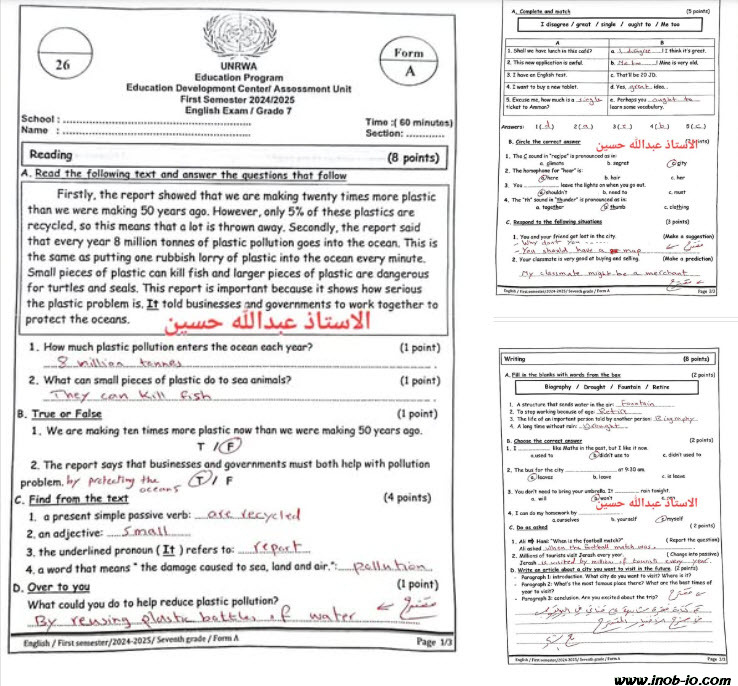 26
UNRWA
Education Program
Education Development Center/ Assessment Unit
First Semester 2024/2025
English Exam / Grade 7
Form
A
School :
Time :( 60 minutes)
Name :
Section:
Reading (8 points)
A. Read the following text and answer the questions that follow
Firstly, the report showed that we are making twenty times more plastic
than we were making 50 years ago. However, only 5% of these plastics are
recycled, so this means that a lot is thrown away. Secondly, the report said
that every year 8 million tonnes of plastic pollution goes into the ocean. This is
the same as putting one rubbish lorry of plastic into the ocean every minute.
Small pieces of plastic can kill fish and larger pieces of plastic are dangerous
for turtles and seals. This report is important because it shows how serious
the plastic problem is. It told businesses and governments to work together to
protect the oceans.
الاستاذ عبدالله حسين
1. How much plastic pollution enters the ocean each year? (1 point)
8 million tonnes
2. What can small pieces of plastic do to sea animals? (1 point)
They can kill fish
B. True or False (1 point)
1. We are making ten times more plastic now than we were making 50 years ago.
T / F
2. The report says that businesses and governments must both help with pollution
problem. by protecting the oceans T / F
C. Find from the text (4 points)
1. a present simple passive verb: are recycled
2. an adjective: small
3. the underlined pronoun ( It ) refers to: report
4. a word that means " the damage caused to sea, land and air.": pollution
D. Over to you (1 point)
What could you do to help reduce plastic pollution? مقترح
By reusing plastic bottles of water
English / First semester/2024-2025/ Seventh grade / Form A Page 1/3
A. Complete and match (5 points)
I disagree / great / single / ought to / Me too
A B
1. Shall we have lunch in this café? a. I disagree I think it's great.
2. This new application is awful. b. Me too ! Mine is very old.
3. I have an English test. c. That'll be 20 JD.
4. I want to buy a new tablet. d. Yes, great idea...
5. Excuse me, how much is a single ticket to Amman? e. Perhaps you ought to learn some vocabulary.
Answers: 1( d ) 2( a ) 3( e ) 4( b ) 5( c )
الاستاذ عبدالله حسين
B. Circle the correct answer
1. The C sound in "recipe" is pronounced as in:
a. climate b. segret c. city
2. The homophone for "hear" is:
a. here b. hair c. her
3. You leave the lights on when you go out.
a. shouldn't b. need to c. must
4. The "th" sound in "thunder" is pronounced as in:
a. together b. thumb c. clothing
C. Respond to the following situations (3 points)
1. You and your friend got lost in the city. (Make a suggestion)
- Why don't you
- You should have a map مقترح
2. Your classmate is very good at buying and selling. (Make a prediction)
My classmate might be a merchant
مقترح
English / First semester/2024-2025/ Seventh grade / Form A Page 2/3
Writing (8 points)
A. Fill in the blanks with words from the box (2 points)
Biography / Drought / Fountain / Retire
1. A structure that sends water in the air: Fountain
2. To stop working because of age: Retire
3. The life of an important person told by another person: Biography
4. A long time without rain: Drought
B. Choose the correct answer (2 points)
1. I like Maths in the past, but I like it now.
a.used to b.didn't use to c. didn't used to
2. The bus for the city at 9:30 am.
a.leaves b. leave c. is leave
3. You don't need to bring your umbrella. It rain tonight.
a. will b.won't
الاستاذ عبدالله حسين
4. I can do my homework by
a.ourselves b. yourself c.myself
C. Do as asked (2 points)
1. Ali Hani: "What is the football match?" ( Report the question)
Ali asked when the football match was
2. Millions of tourists visit Jerash every year. ( Change into passive)
Jerash is visited by million of tourists every year.
D. Write an article about a city you want to visit in the future. (2 points)
- Paragraph 1: introduction. What city do you want to visit? Where is it?
- Paragraph 2: What's the most famous place there? What are the best times of
year to visit?
- Paragraph 3: conclusion. Are you excited about the trip? مقترح
English / First semester/2024-2025/ Seventh grade / Form A Page 3/3
www.inob-io.com